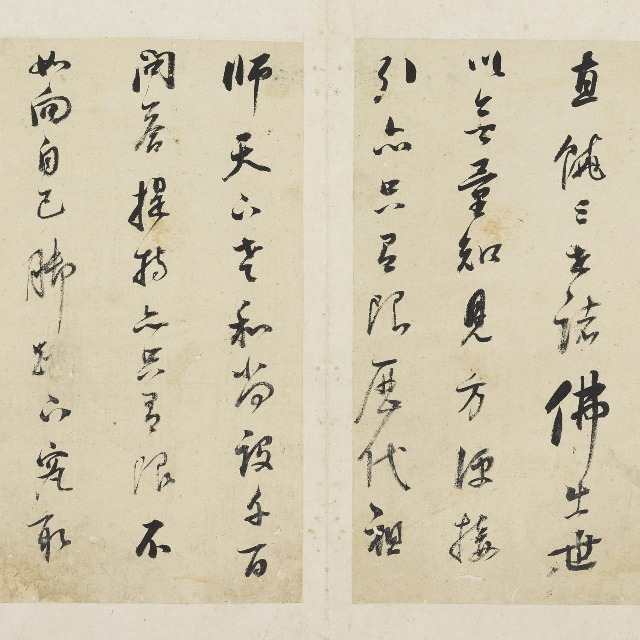 直饒三世諸佛出世
以無量知見方便接
引亦只有限歷代祖
師天下老和尚設千百
問答提持亦只有限不
如向自己脚下究取